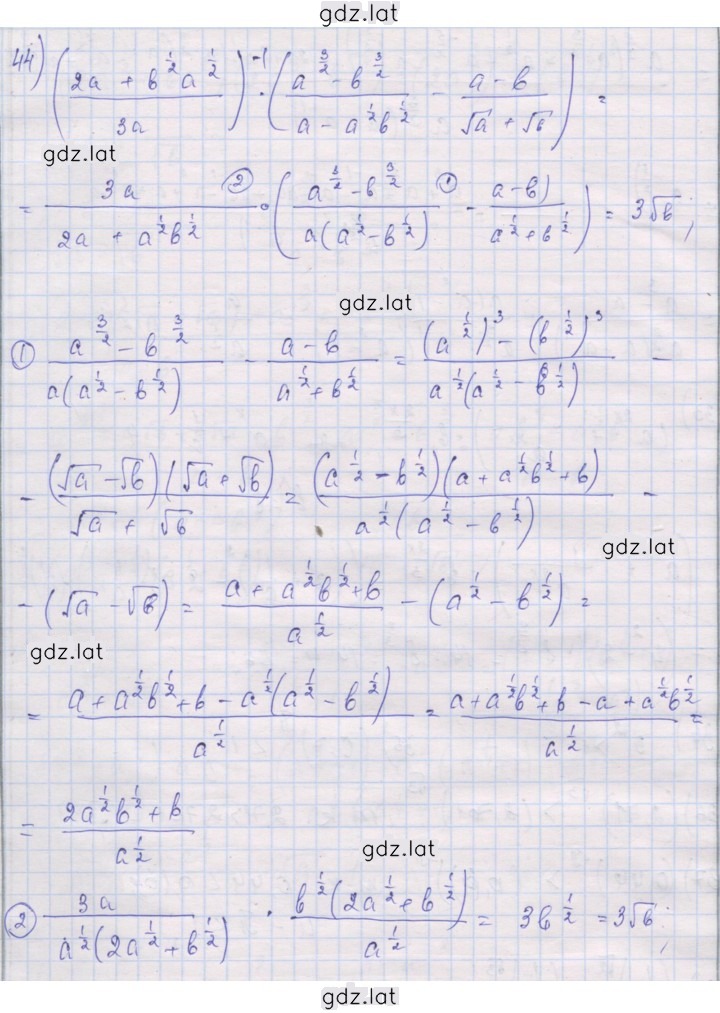 gdz.lat
44) ((2a + b^(1/2)a^(1/2))/(3a))^(-1) · ((a^(3/2) - b^(3/2))/(a - a^(1/2)b^(1/2)) - (a - b)/(√a + √b)) =
gdz.lat
= (3a)/(2a + a^(1/2)b^(1/2)) ·② ((a^(3/2) - b^(3/2))/(a(a^(1/2) - b^(1/2))) -① (a - b))/(a^(1/2) + b^(1/2))) = 3√b;
gdz.lat
① (a^(3/2) - b^(3/2))/(a(a^(1/2) - b^(1/2))) - (a - b)/(a^(1/2) + b^(1/2)) = ((a^(1/2))^3 - (b^(1/2))^3)/(a^(1/2)(a^(1/2) - b^(1/2))) -
- ((√a - √b)(√a + √b))/(√a + √b) = ((a^(1/2) - b^(1/2))(a + a^(1/2)b^(1/2) + b))/(a^(1/2)(a^(1/2) - b^(1/2))) -
gdz.lat
- (√a - √b) = (a + a^(1/2)b^(1/2) + b)/(a^(1/2)) - (a^(1/2) - b^(1/2)) =
gdz.lat
= (a + a^(1/2)b^(1/2) + b - a^(1/2)(a^(1/2) - b^(1/2)))/(a^(1/2)) = (a + a^(1/2)b^(1/2) + b - a + a^(1/2)b^(1/2))/(a^(1/2)) =
= (2a^(1/2)b^(1/2) + b)/(a^(1/2))
gdz.lat
② (3a)/(a^(1/2)(2a^(1/2) + b^(1/2))) · (b^(1/2)(2a^(1/2) + b^(1/2)))/(a^(1/2)) = 3b^(1/2) = 3√b;
gdz.lat